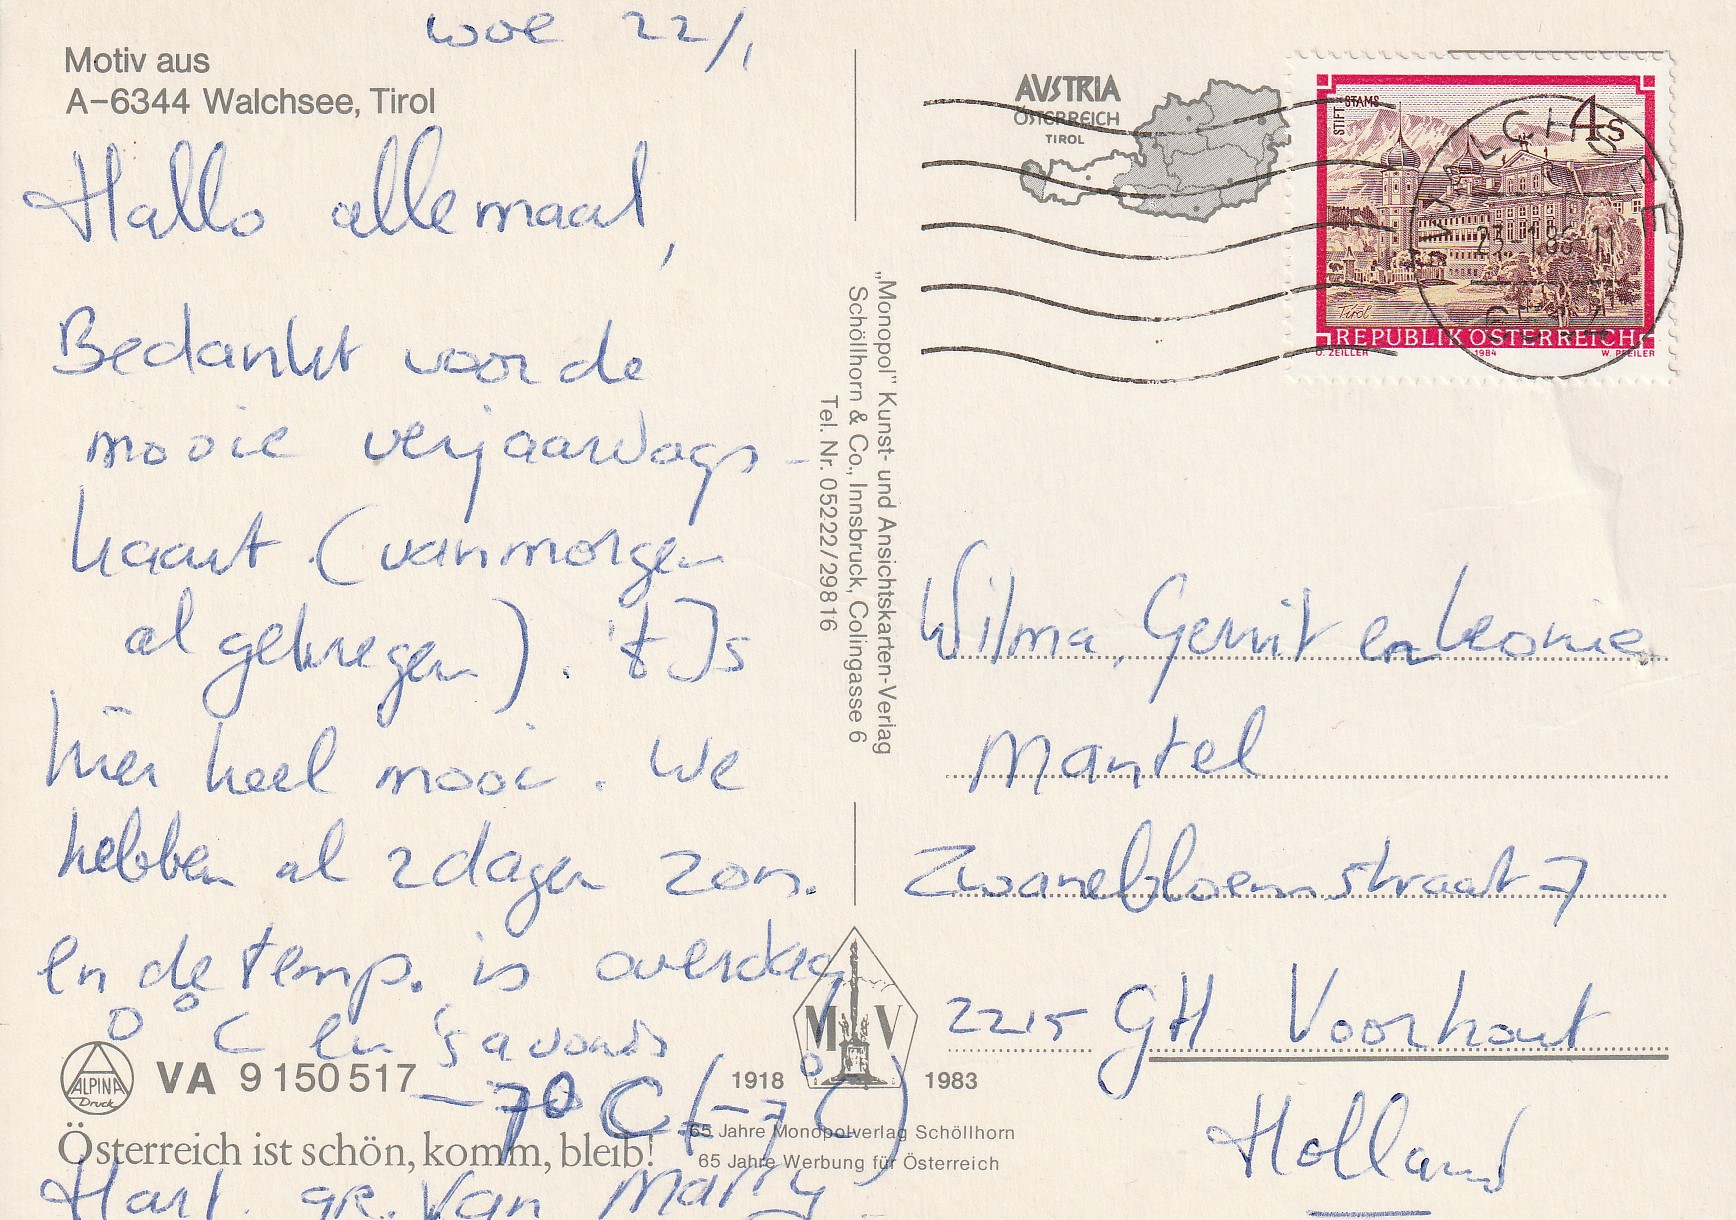 woe 22/1
Motiv aus
A-6344 Walchsee, Tirol
Hallo allemaal,
Bedankt voor de
mooie verjaardags-
kaart (vanmorgen
al gekregen). 't Is
hier heel mooi. We
hebben al 2 dagen zon.
en de temp. is overdag
0°C en 's avonds
-7°C (-7°C)
Hart. gr. van Marry
ALPINA
Druck
VA 9 150 517
Österreich ist schön, komm, bleib!
„Monopol" Kunst- und Ansichtskarten-Verlag
Schöllhorn & Co., Innsbruck, Colingasse 6
Tel. Nr. 05222/29816
M V
1918 1983
65 Jahre Monopolverlag Schöllhorn
65 Jahre Werbung für Österreich
AUSTRIA
ÖSTERREICH
TIROL
STIFT STAMS
4s
Tirol
REPUBLIK ÖSTERREICH
O. ZEILLER 1984 W. PFEILER
WALCHSEE
23.-1.86-11
6344
Wilma, Gerrit en Leonie
Mantel
Zwanebloemstraat 7
2215 GH Voorhout
Holland